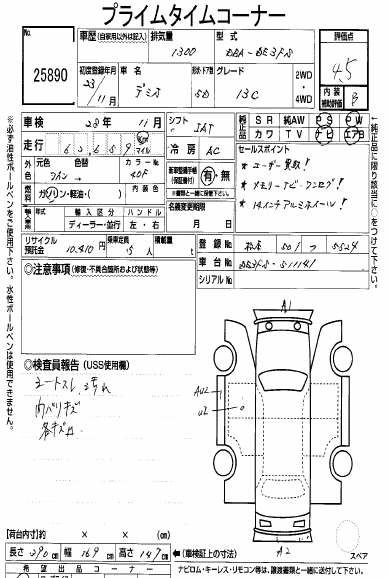 プライムタイムコーナー
No.
25890
車歴 (自家用以外は記入)
排気量
型式
評価点
1300
DBA-DE3FS
4.5
初度登録年月
車名
形状・ドア数
グレード
23/11月
デミオ
5D
13C
2WD・4WD
内装補助評価
B
車検
23年 11月
シフト
IAT
純正品
SR 純AW PS PW
カワ TV ナビ エアB
走行
マイル
冷房
AC
セールスポイント
外色
元色
色替
カラーNo
40F
新車整備手帳(保証書付)
有・無
(書類と一緒に保管して下さい。)
★ユーザー買取!
★メモリーナビ・ワンセグ!
★14インチアルミホイール!
燃料
ガソリン・軽油・( )
内装色
輸入車
輸入区分
ハンドル
ディーラー・並行
左・右
名義変更期限
月 日
リサイクル預託金
10,410円
乗車定員
5人
積載量
t
登録No
501 つ 5524
車台No
DE3FS-511141
シリアルNo
◎注意事項 (修復・不具合箇所および状態等)
◎検査員報告 (USS使用欄)
シートスレ、汚れ
内バリキズ
各キズ
A1
AU2
U2
A2
スペア
【荷台内寸】 × × (cm)
長さ 390 cm 幅 169 高さ 147 cm (車検証上の寸法)
希望出品コーナー
ナビロム・キーレス・リモコン等は、譲渡書類と一緒に送付して下さい。
※必ず油性ボールペンをご使用下さい。水性ボールペンは使用できません。
純正品に限り該当に○をつけて下さい。